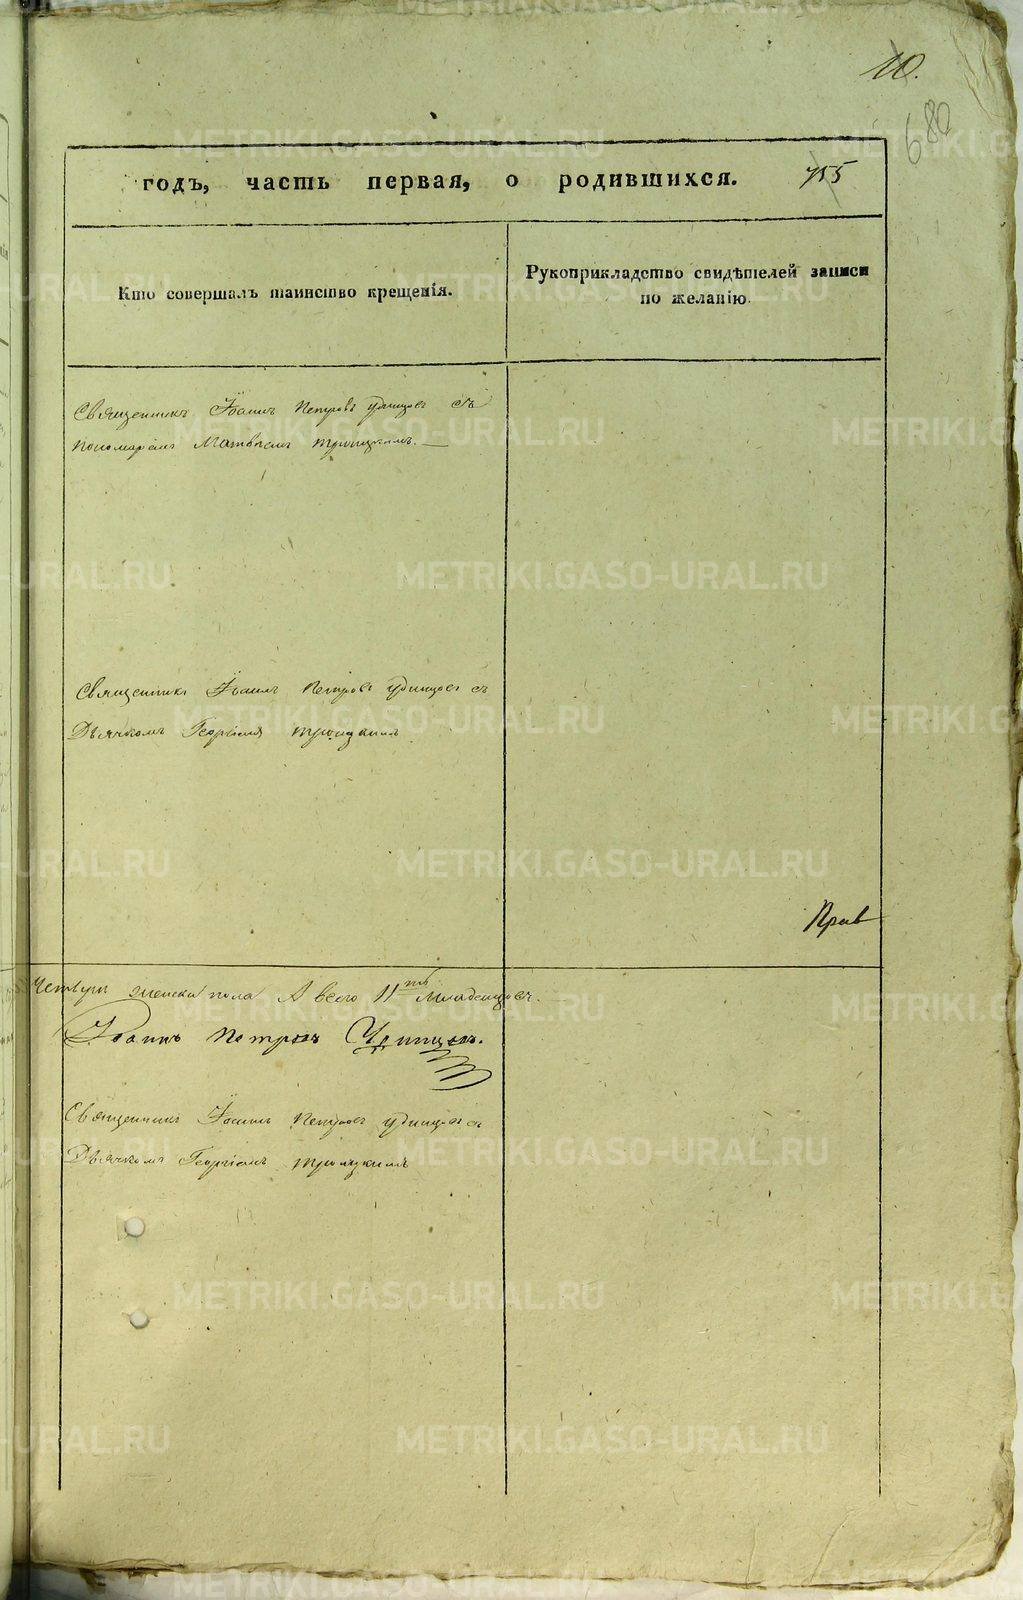 10.
680
годъ, часть первая, о родившихся. 755
Кто совершалъ таинство крещенія.
Рукоприкладство свидѣтелей записи
по желанію.
Священникъ Іоаннъ Петровъ Удинцовъ съ
Пономаремъ Матвѣемъ Троицкимъ.
Священникъ Іоаннъ Петровъ Удинцовъ съ
Дьячкомъ Георгіемъ Троицкимъ
Прав
женска пола А всего 11ть младенцовъ.
Іоаннъ Петровъ Удинцовъ.
Священникъ Іоаннъ Петровъ Удинцовъ съ
Дьячкомъ Георгіемъ Троицкимъ
METRIKI.GASO-URAL.RU